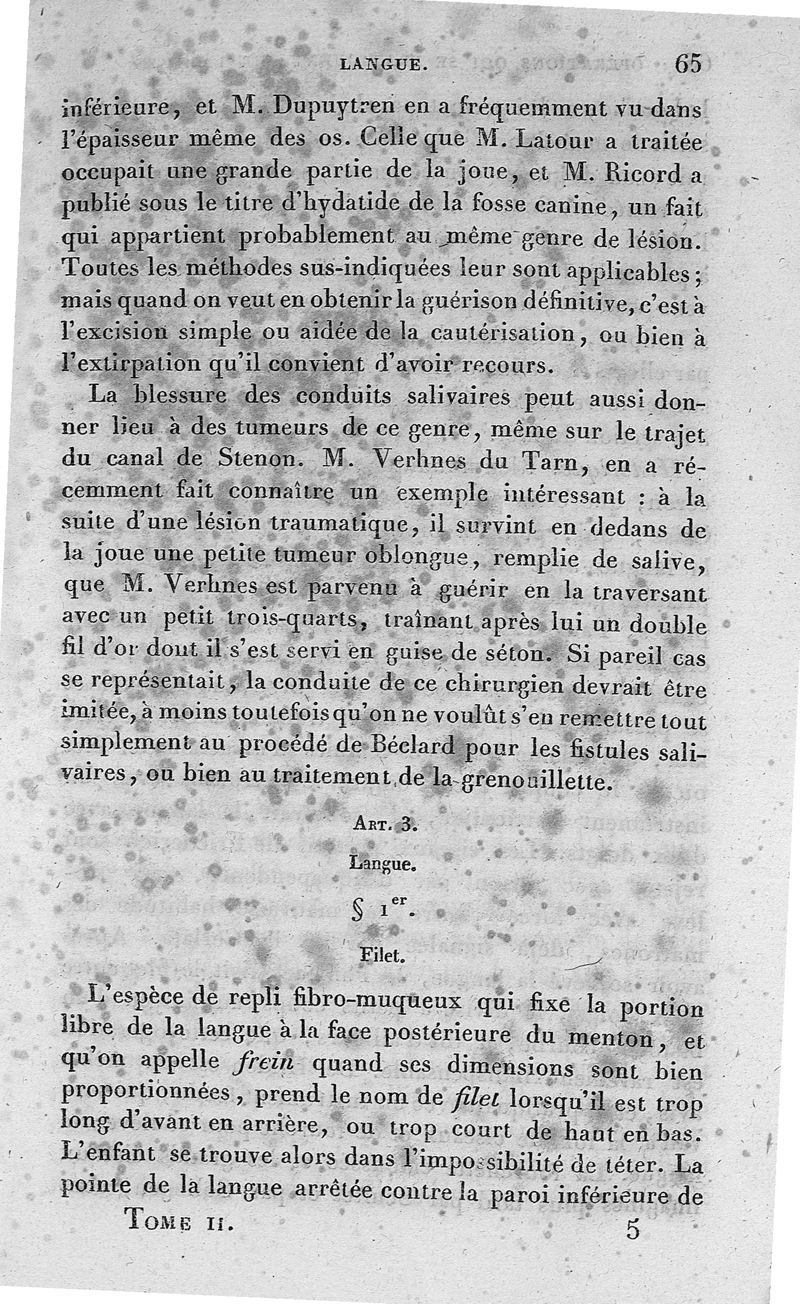 LANGUE. 65
inférieure, et M. Dupuytren en a fréquemment vu dans
l'épaisseur même des os. Celle que M. Latour a traitée
occupait une grande partie de la joue, et M. Ricord a
publié sous le titre d'hydatide de la fosse canine, un fait
qui appartient probablement au même genre de lésion.
Toutes les méthodes sus-indiquées leur sont applicables;
mais quand on veut en obtenir la guérison définitive, c'est à
l'excision simple ou aidée de la cautérisation, ou bien à
l'extirpation qu'il convient d'avoir recours.
La blessure des conduits salivaires peut aussi don-
ner lieu à des tumeurs de ce genre, même sur le trajet
du canal de Stenon. M. Verhnes du Tarn, en a ré-
cemment fait connaître un exemple intéressant : à la
suite d'une lésion traumatique, il survint en dedans de
la joue une petite tumeur oblongue, remplie de salive,
que M. Verhnes est parvenu à guérir en la traversant
avec un petit trois-quarts, traînant après lui un double
fil d'or dont il s'est servi en guise de séton. Si pareil cas
se représentait, la conduite de ce chirurgien devrait être
imitée, à moins toutefois qu'on ne voulût s'en remettre tout
simplement au procédé de Béclard pour les fistules sali-
vaires, ou bien au traitement de la grenouillette.
ART. 3.
Langue.
§ 1er.
Filet.
L'espèce de repli fibro-muqueux qui fixe la portion
libre de la langue à la face postérieure du menton, et
qu'on appelle frein quand ses dimensions sont bien
proportionnées, prend le nom de filet lorsqu'il est trop
long d'avant en arrière, ou trop court de haut en bas.
L'enfant se trouve alors dans l'impossibilité de téter. La
pointe de la langue arrêtée contre la paroi inférieure de
TOME II. 5